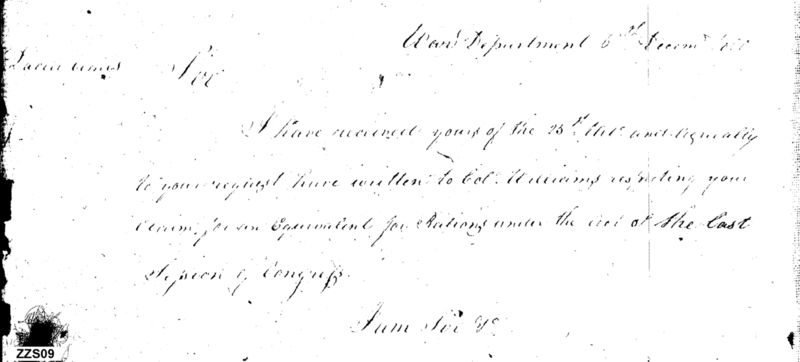 War Department 6th Decemr
Sir
I have received yours of the 25th Ulto. and agreeably
to your request have written to Col. Williams respecting your
Claim for an Equivalent for Rations under the act of the last
Session of Congress.
I am Sir &c
ZZS09